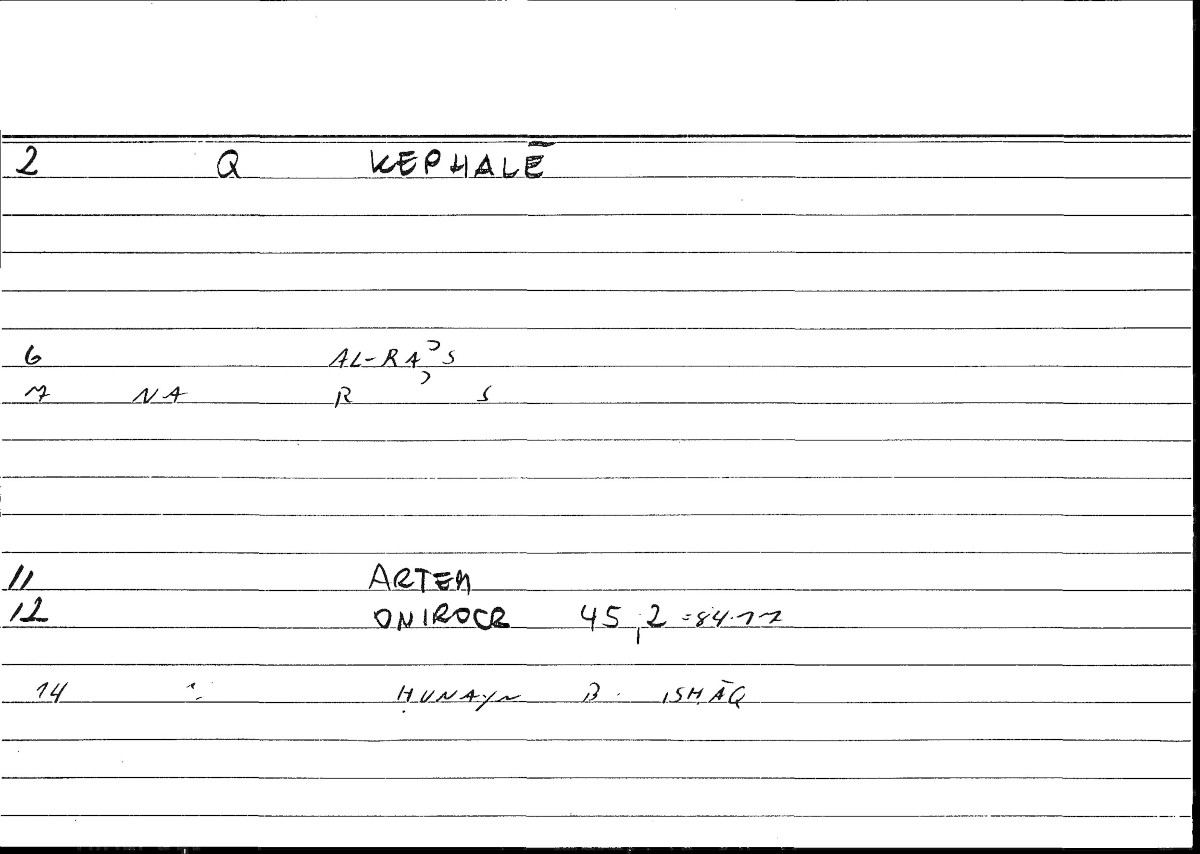 2 Q KEPHALĒ
6 AL-RAʾS
7 NA R ʾ S
11 ARTEM
12 ONIROCR 45,2 =84.17
14 ḤUNAYN B. ISḤĀQ